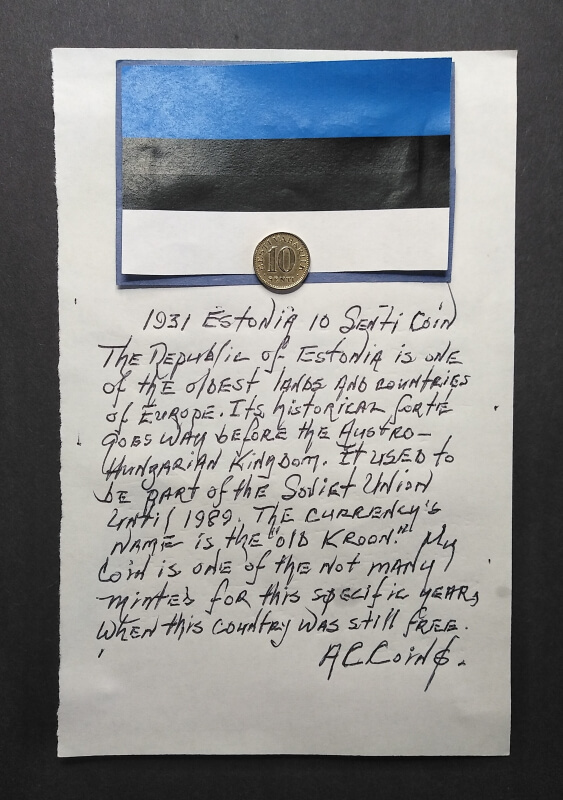 EESTI VABARIIK
10
SENTI
1931 Estonia 10 Senti Coin
The Republic of Estonia is one
of the oldest lands and countries
of Europe. Its historical forte
goes way before the Austro-
Hungarian Kingdom. It used to
be part of the Soviet Union
until 1989. The currency's
name is the "old Kroon." My
Coin is one of the not many
mintes for this specific year,
when this country was still free.
ACCoin$.